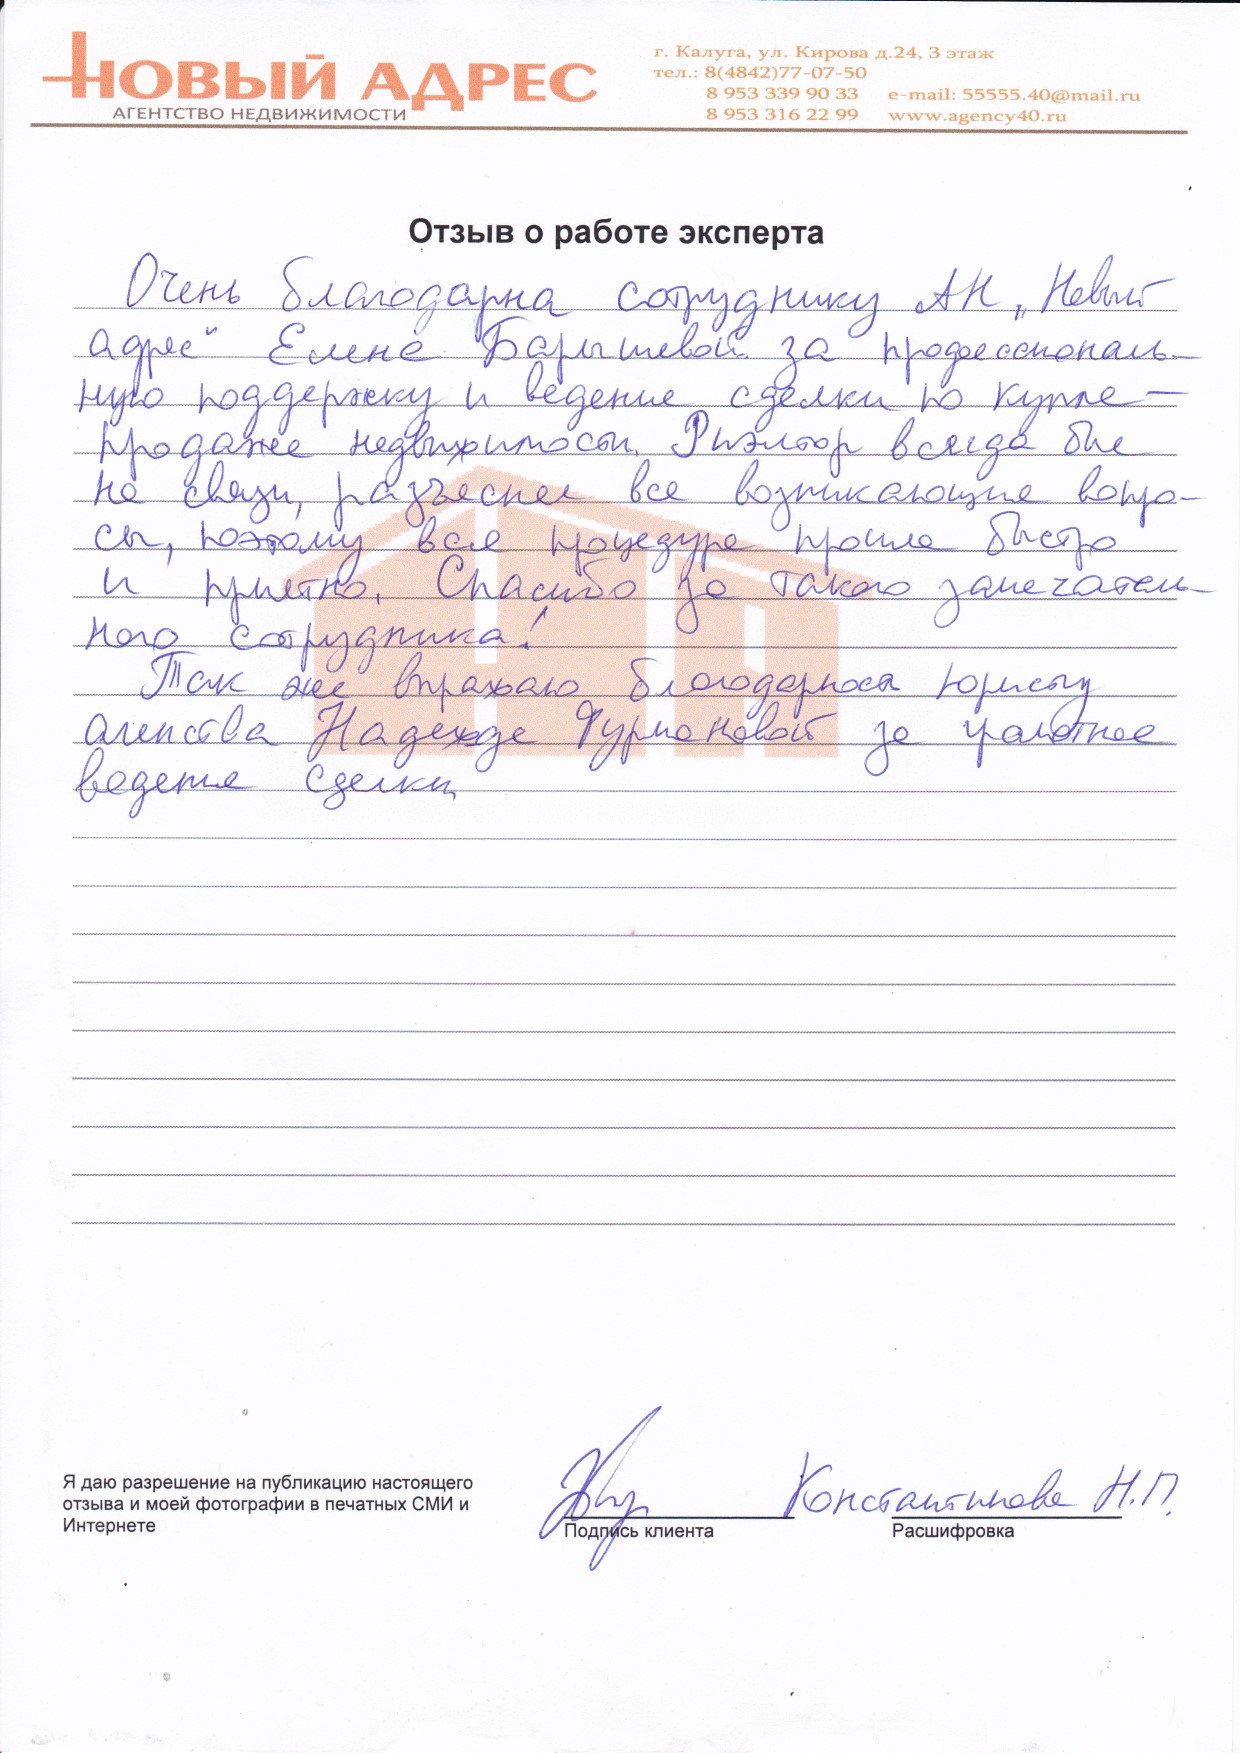 НОВЫЙ АДРЕС
АГЕНТСТВО НЕДВИЖИМОСТИ
г. Калуга, ул. Кирова д.24, 3 этаж
тел.: 8(4842)77-07-50
8 953 339 90 33 e-mail: 55555.40@mail.ru
8 953 316 22 99 www.agency40.ru
Отзыв о работе эксперта
Очень благодарна сотруднику АН „Новый
адрес" Елене Барышевой за профессиональ-
ную поддержку и ведение сделки по купле-
продаже недвижимости. Риэлтор всегда был
на связи, разъяснял все возникающие вопро-
сы, поэтому вся процедура прошла быстро
и приятно. Спасибо за такого замечатель-
ного сотрудника!
Так же выражаю благодарность юристу
агенства Надежде Фурмановой за грамотное
ведение сделки
Я даю разрешение на публикацию настоящего
отзыва и моей фотографии в печатных СМИ и
Интернете
Константинова Н.П.
Подпись клиента Расшифровка